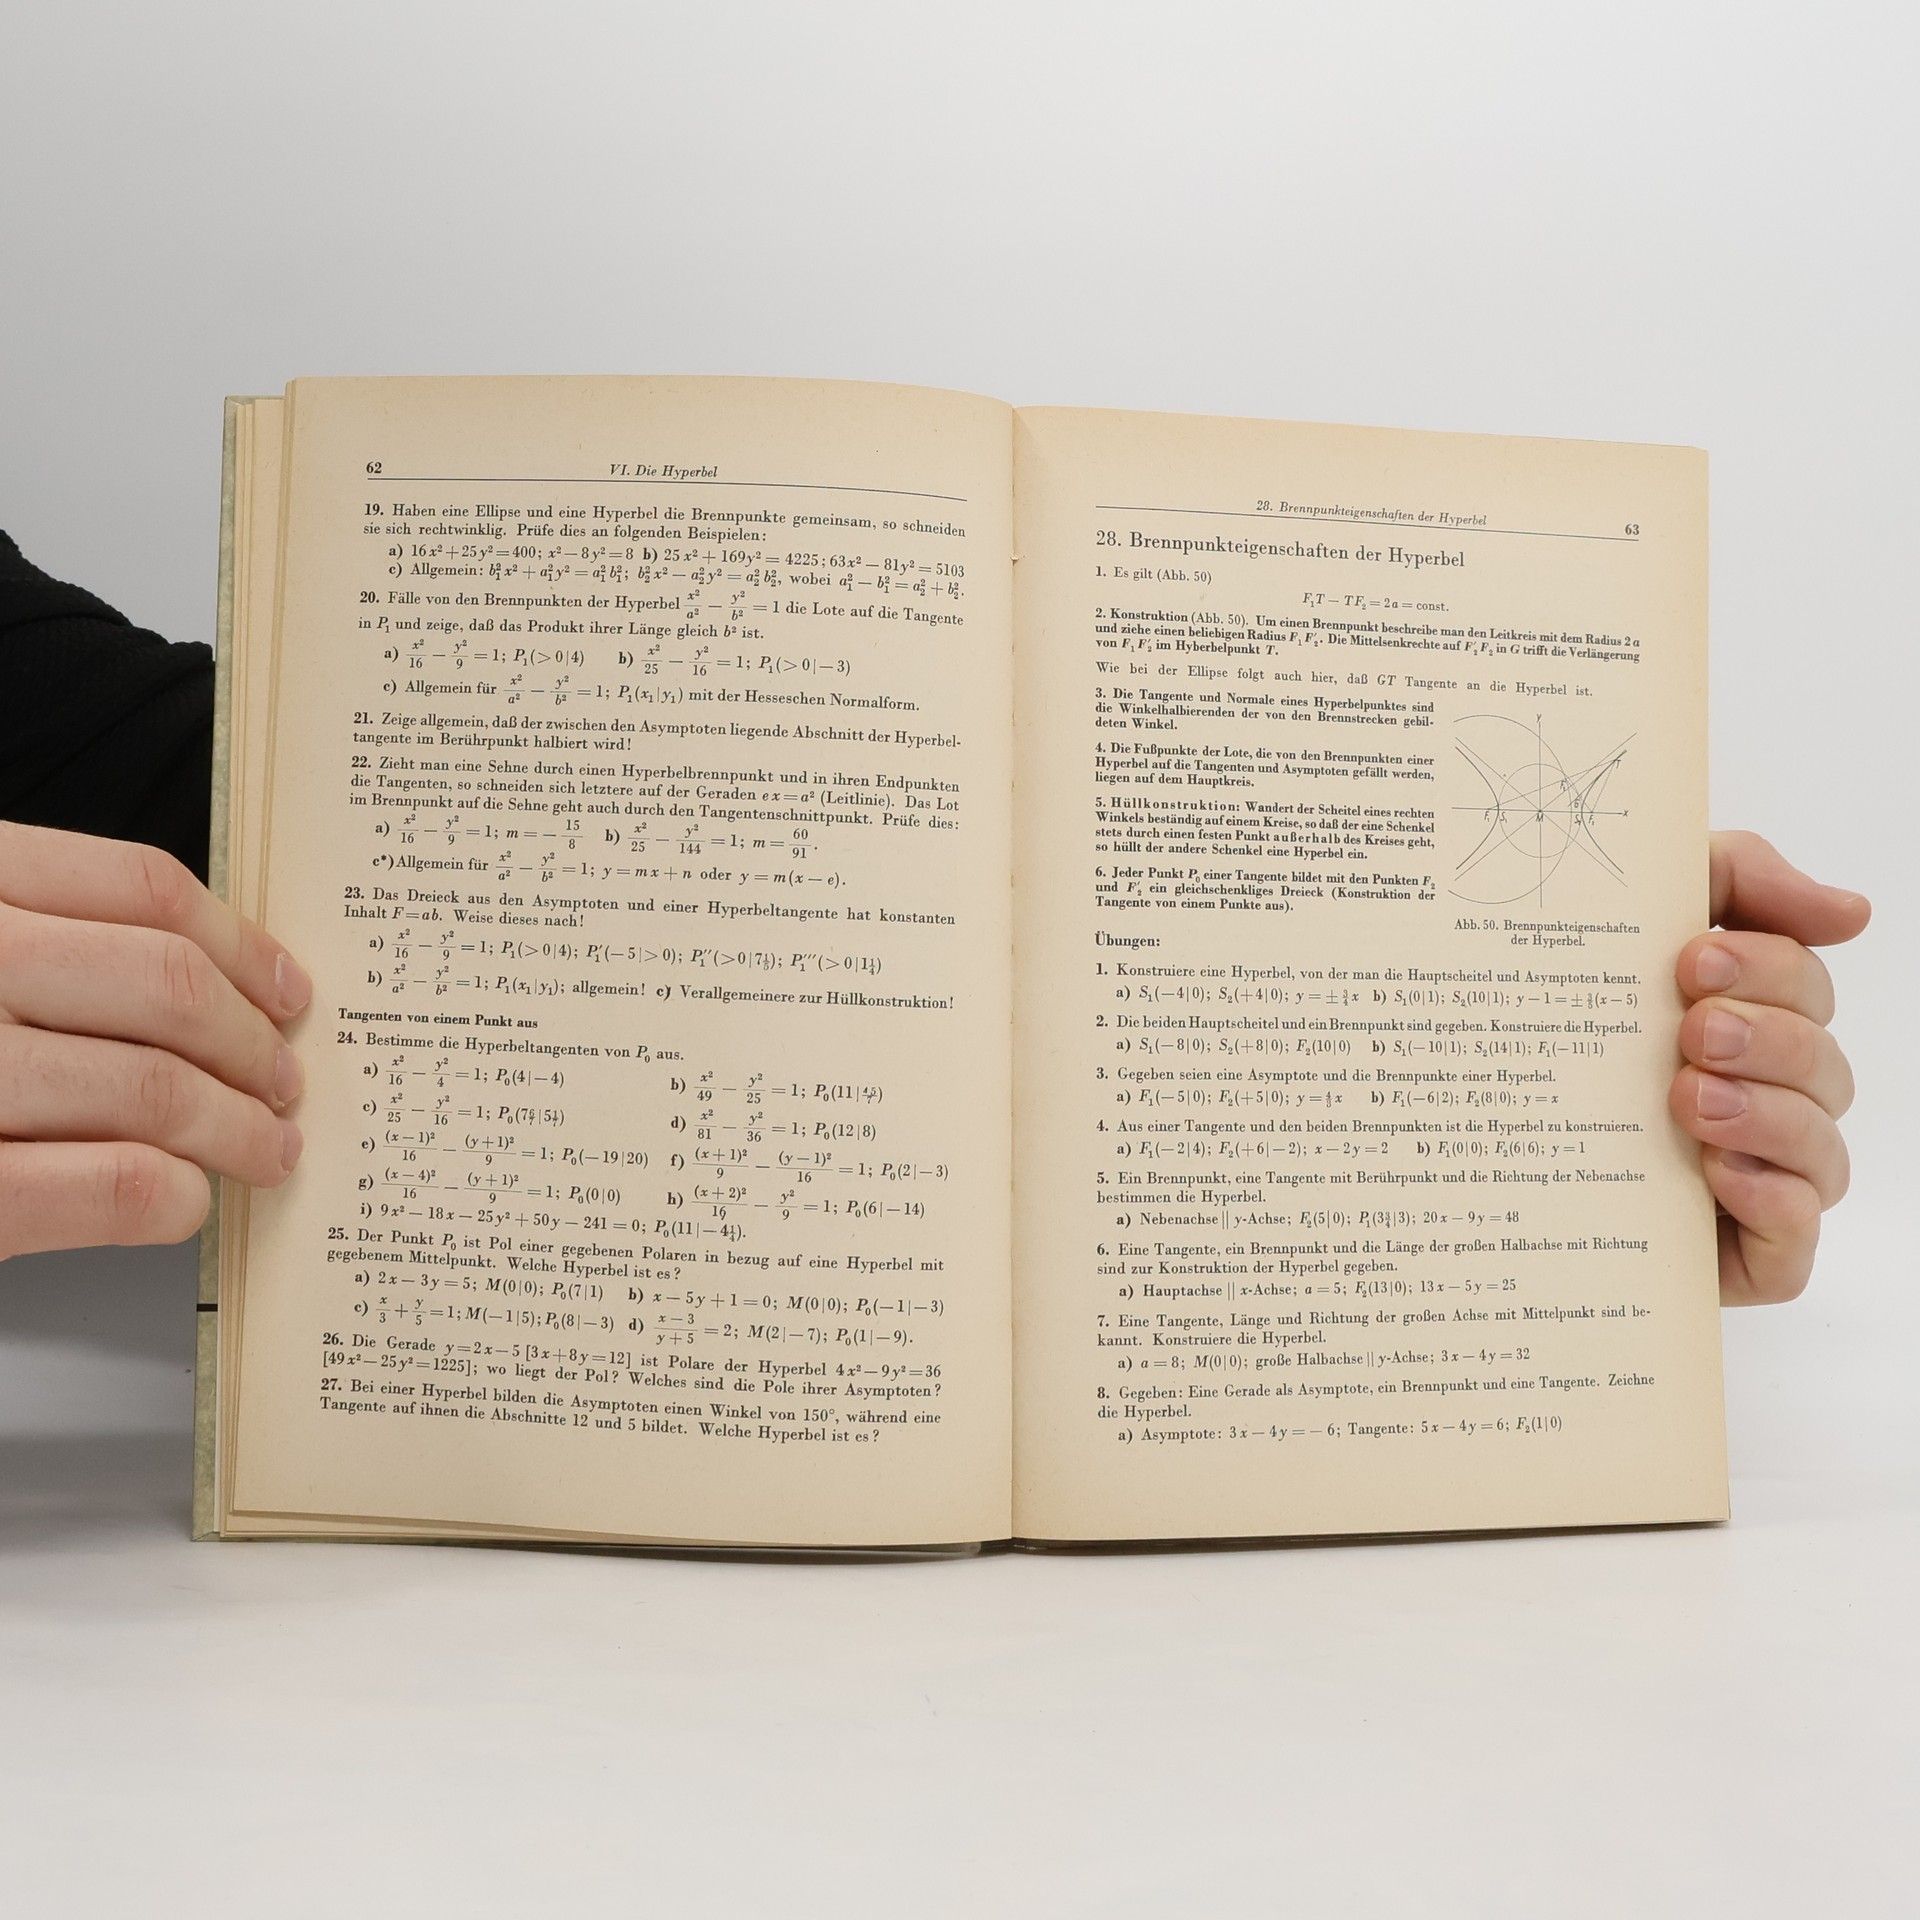 62
VI. Die Hyperbel
19. Haben eine Ellipse und eine Hyperbel die Brennpunkte gemeinsam, so schneiden
sie sich rechtwinklig. Prüfe dies an folgenden Beispielen:
a) 16x² + 25y² = 400; x² — 8y² = 8 b) 25x² + 169y² = 4225; 63x² — 81y² = 5103
c) Allgemein: b₁²x² + a₁²y² = a₁²b₁²; b₂²x² — a₂²y² = a₂²b₂², wobei a₁² — b₁² = a₂² + b₂².
20. Fälle von den Brennpunkten der Hyperbel x²/a² — y²/b² = 1 die Lote auf die Tangente
in P₁ und zeige, daß das Produkt ihrer Länge gleich b² ist.
a) x²/16 — y²/9 = 1; P₁(>0|4) b) x²/25 — y²/16 = 1; P₁(>0|—3)
c) Allgemein für x²/a² — y²/b² = 1; P₁(x₁|y₁) mit der Hesseschen Normalform.
21. Zeige allgemein, daß der zwischen den Asymptoten liegende Abschnitt der Hyperbel-
tangente im Berührpunkt halbiert wird!
22. Zieht man eine Sehne durch einen Hyperbelbrennpunkt und in ihren Endpunkten
die Tangenten, so schneiden sich letztere auf der Geraden ex = a² (Leitlinie). Das Lot
im Brennpunkt auf die Sehne geht auch durch den Tangentenschnittpunkt. Prüfe dies:
a) x²/16 — y²/9 = 1; m = — 15/8 b) x²/25 — y²/144 = 1; m = 60/91.
c*) Allgemein für x²/a² — y²/b² = 1; y = mx + n oder y = m(x — e).
23. Das Dreieck aus den Asymptoten und einer Hyperbeltangente hat konstanten
Inhalt F = ab. Weise dieses nach!
a) x²/16 — y²/9 = 1; P₁(>0|4); P₁′(—5|>0); P₁″(>0|7⅕); P₁‴(>0|1¼)
b) x²/a² — y²/b² = 1; P₁(x₁|y₁); allgemein! c) Verallgemeinere zur Hüllkonstruktion!
Tangenten von einem Punkt aus
24. Bestimme die Hyperbeltangenten von P₀ aus.
a) x²/16 — y²/4 = 1; P₀(4|—4) b) x²/49 — y²/25 = 1; P₀(11|45/7)
c) x²/25 — y²/16 = 1; P₀(7 6/7|5 1/7) d) x²/81 — y²/36 = 1; P₀(12|8)
e) (x—1)²/16 — (y+1)²/9 = 1; P₀(—19|20) f) (x+1)²/9 — (y—1)²/16 = 1; P₀(2|—3)
g) (x—4)²/16 — (y+1)²/9 = 1; P₀(0|0) h) (x+2)²/16 — y²/9 = 1; P₀(6|—14)
i) 9x² — 18x — 25y² + 50y — 241 = 0; P₀(11|—4¼).
25. Der Punkt P₀ ist Pol einer gegebenen Polaren in bezug auf eine Hyperbel mit
gegebenem Mittelpunkt. Welche Hyperbel ist es?
a) 2x — 3y = 5; M(0|0); P₀(7|1) b) x — 5y + 1 = 0; M(0|0); P₀(—1|—3)
c) x/3 + y/5 = 1; M(—1|5); P₀(8|—3) d) (x—3)/(y+5) = 2; M(2|—7); P₀(1|—9).
26. Die Gerade y = 2x — 5 [3x + 8y = 12] ist Polare der Hyperbel 4x² — 9y² = 36
[49x² — 25y² = 1225]; wo liegt der Pol? Welches sind die Pole ihrer Asymptoten?
27. Bei einer Hyperbel bilden die Asymptoten einen Winkel von 150°, während eine
Tangente auf ihnen die Abschnitte 12 und 5 bildet. Welche Hyperbel ist es?
28. Brennpunkteigenschaften der Hyperbel
63
28. Brennpunkteigenschaften der Hyperbel
1. Es gilt (Abb. 50)
F₁T — TF₂ = 2a = const.
2. Konstruktion (Abb. 50). Um einen Brennpunkt beschreibe man den Leitkreis mit dem Radius 2a
und ziehe einen beliebigen Radius F₁F₂′. Die Mittelsenkrechte auf F₂′F₂ in G trifft die Verlängerung
von F₁F₂′ im Hyberbelpunkt T.
Wie bei der Ellipse folgt auch hier, daß GT Tangente an die Hyperbel ist.
3. Die Tangente und Normale eines Hyperbelpunktes sind
die Winkelhalbierenden der von den Brennstrecken gebil-
deten Winkel.
4. Die Fußpunkte der Lote, die von den Brennpunkten einer
Hyperbel auf die Tangenten und Asymptoten gefällt werden,
liegen auf dem Hauptkreis.
5. Hüllkonstruktion: Wandert der Scheitel eines rechten
Winkels beständig auf einem Kreise, so daß der eine Schenkel
stets durch einen festen Punkt außerhalb des Kreises geht,
so hüllt der andere Schenkel eine Hyperbel ein.
6. Jeder Punkt P₀ einer Tangente bildet mit den Punkten F₂
und F₂′ ein gleichschenkliges Dreieck (Konstruktion der
Tangente von einem Punkte aus).
y
T
G
F₁ S₁ M x
Abb. 50. Brennpunkteigenschaften
der Hyperbel.
Übungen:
1. Konstruiere eine Hyperbel, von der man die Hauptscheitel und Asymptoten kennt.
a) S₁(—4|0); S₂(+4|0); y = ± ¾x b) S₁(0|1); S₂(10|1); y — 1 = ± ⅗(x — 5)
2. Die beiden Hauptscheitel und ein Brennpunkt sind gegeben. Konstruiere die Hyperbel.
a) S₁(—8|0); S₂(+8|0); F₂(10|0) b) S₁(—10|1); S₂(14|1); F₁(—11|1)
3. Gegeben seien eine Asymptote und die Brennpunkte einer Hyperbel.
a) F₁(—5|0); F₂(+5|0); y = 4/3 x b) F₁(—6|2); F₂(8|0); y = x
4. Aus einer Tangente und den beiden Brennpunkten ist die Hyperbel zu konstruieren.
a) F₁(—2|4); F₂(+6|—2); x — 2y = 2 b) F₁(0|0); F₂(6|6); y = 1
5. Ein Brennpunkt, eine Tangente mit Berührpunkt und die Richtung der Nebenachse
bestimmen die Hyperbel.
a) Nebenachse || y-Achse; F₂(5|0); P₁(3¾|3); 20x — 9y = 48
6. Eine Tangente, ein Brennpunkt und die Länge der großen Halbachse mit Richtung
sind zur Konstruktion der Hyperbel gegeben.
a) Hauptachse || x-Achse; a = 5; F₂(13|0); 13x — 5y = 25
7. Eine Tangente, Länge und Richtung der großen Achse mit Mittelpunkt sind be-
kannt. Konstruiere die Hyperbel.
a) a = 8; M(0|0); große Halbachse || y-Achse; 3x — 4y = 32
8. Gegeben: Eine Gerade als Asymptote, ein Brennpunkt und eine Tangente. Zeichne
die Hyperbel.
a) Asymptote: 3x — 4y = — 6; Tangente: 5x — 4y = 6; F₂(1|0)